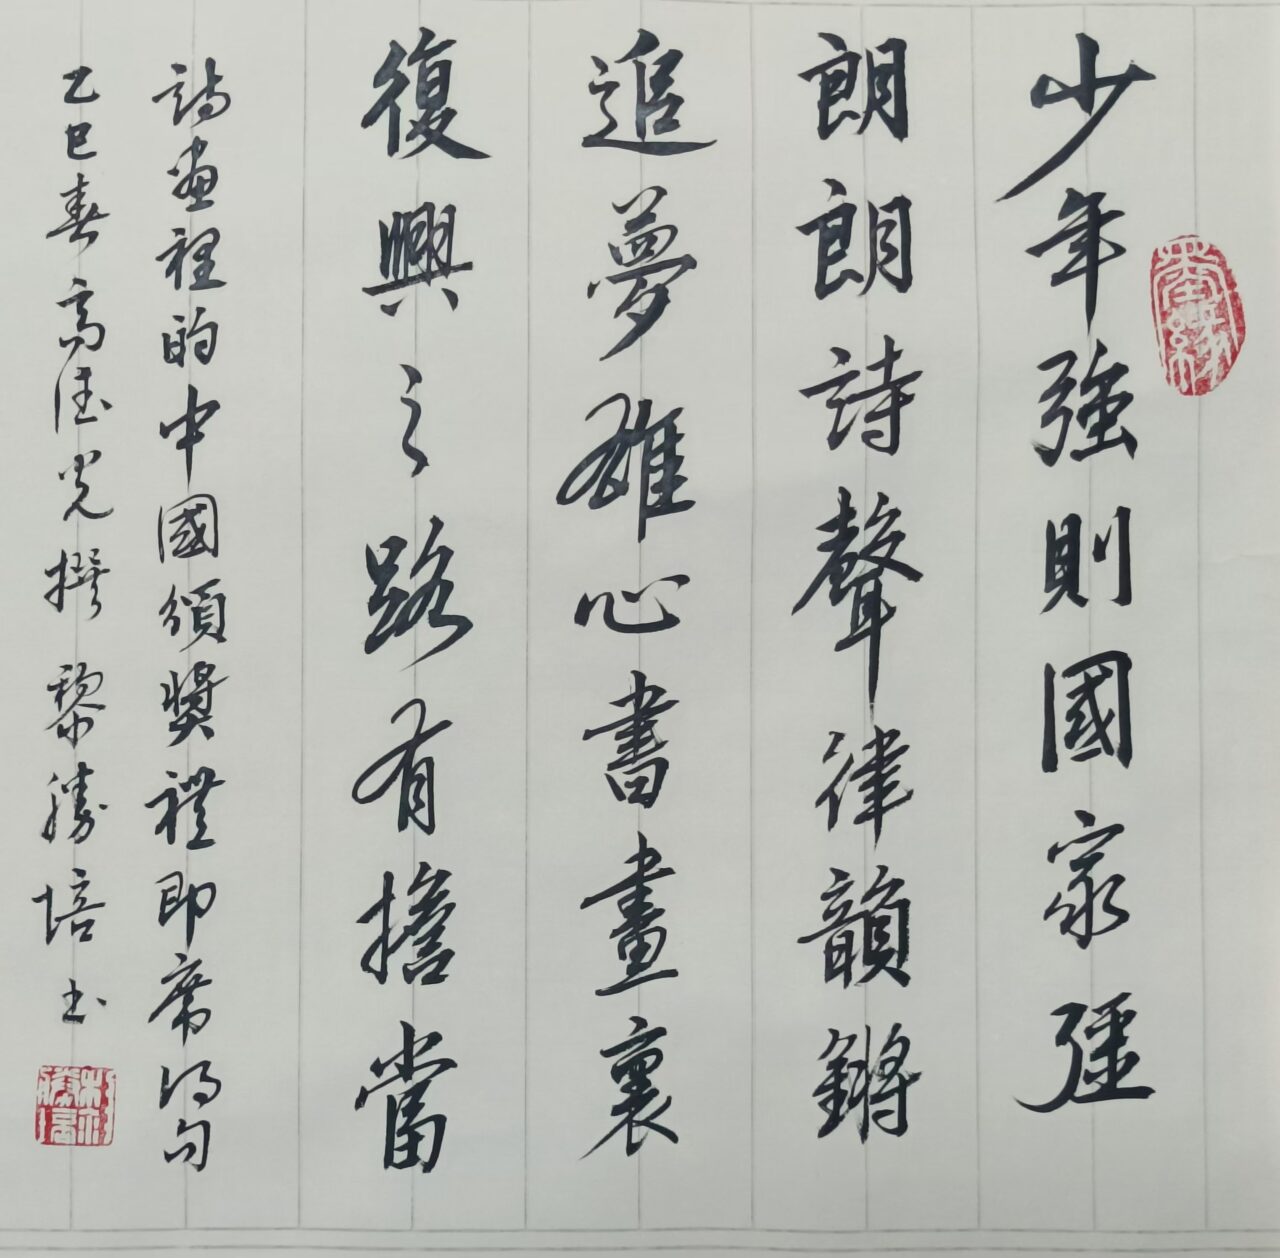 少年強則國家彊
朗朗詩聲律韻鏘
追夢雄心書畫裏
復興之路有擔當
詩畫裡的中國頒獎禮即席得句
乙巳春高德光撰 黎勝培書